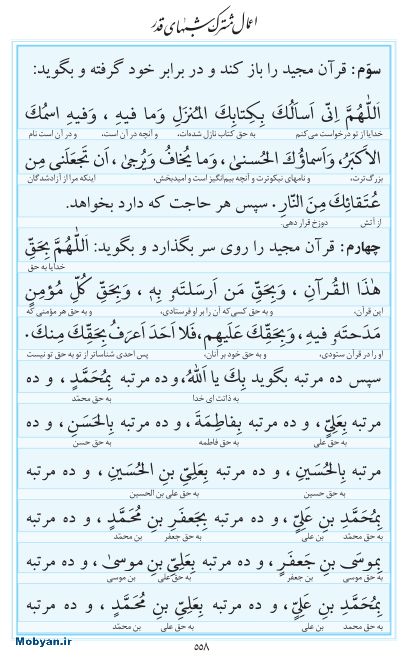 اعمال مشترک شبهای قدر
سوّم: قرآن مجید را باز کند و در برابر خود گرفته و بگوید:
اَللّٰهُمَّ اِنّی اَسأَلُكَ بِکِتابِكَ المُنزَلِ وَما فیهِ ، وَفیهِ اسمُكَ
خدایا از تو درخواست می‌کنم به حق کتاب نازل شده‌ات، و آنچه در آن است، و در آن است نام
الأَکبَرُ، وَاَسماؤُكَ الحُسنیٰ، وَما یُخافُ وَیُرجیٰ، اَن تَجعَلَنی مِن
بزرگ‌ترت، و نامهای نیکوترت و آنچه بیم‌انگیز است و امیدبخش، اینکه مرا از آزادشدگان
عُتَقائِكَ مِنَ النّارِ. سپس هر حاجت که دارد بخواهد.
از آتش دوزخ قرار دهی.
چهارم: قرآن مجید را روی سر بگذارد و بگوید: اَللّٰهُمَّ بِحَقِّ
خدایا به حق
هٰذَا القُرآنِ ، وَبِحَقِّ مَن اَرسَلتَهُ بِهِ ، وَبِحَقِّ کُلِّ مُؤمِنٍ
این قرآن، و به حق کسی که آن را بر او فرستادی، و به حق هر مؤمنی که
مَدَحتَهُ فیهِ، وَبِحَقِّكَ عَلَیهِم، فَلا اَحَدَ اَعرَفُ بِحَقِّكَ مِنكَ.
او را در قرآن ستودی، و به حق خود بر آنان، پس احدی شناساتر از تو به حق تو نیست
سپس ده مرتبه بگوید بِكَ یا اَللّٰهُ، و ده مرتبه بِمُحَمَّدٍ ، و ده
به ذاتت ای خدا به حق محمّد
مرتبه بِعَلِیٍّ ، و ده مرتبه بِفاطِمَةَ ، و ده مرتبه بِالحَسَنِ ، و ده
به حق علی به حق فاطمه به حق حسن
مرتبه بِالحُسَینِ ، و ده مرتبه بِعَلِیِّ بنِ الحُسَینِ ، و ده مرتبه
به حق حسین به حق علی بن الحسین
بِمُحَمَّدِ بنِ عَلِیٍّ ، و ده مرتبه بِجَعفَرِ بنِ مُحَمَّدٍ ، و ده مرتبه
به حق محمّد بن علی به حق جعفر بن محمّد
بِموسَی بنِ جَعفَرٍ ، و ده مرتبه بِعَلِیِّ بنِ موسیٰ ، و ده مرتبه
به حق موسی بن جعفر به حق علی بن موسی
بِمُحَمَّدِ بنِ عَلِیٍّ ، و ده مرتبه بِعَلِیِّ بنِ مُحَمَّدٍ ، و ده مرتبه
به حق محمد بن علی به حق علی بن محمّد
۵۵۸
Mobyan.ir